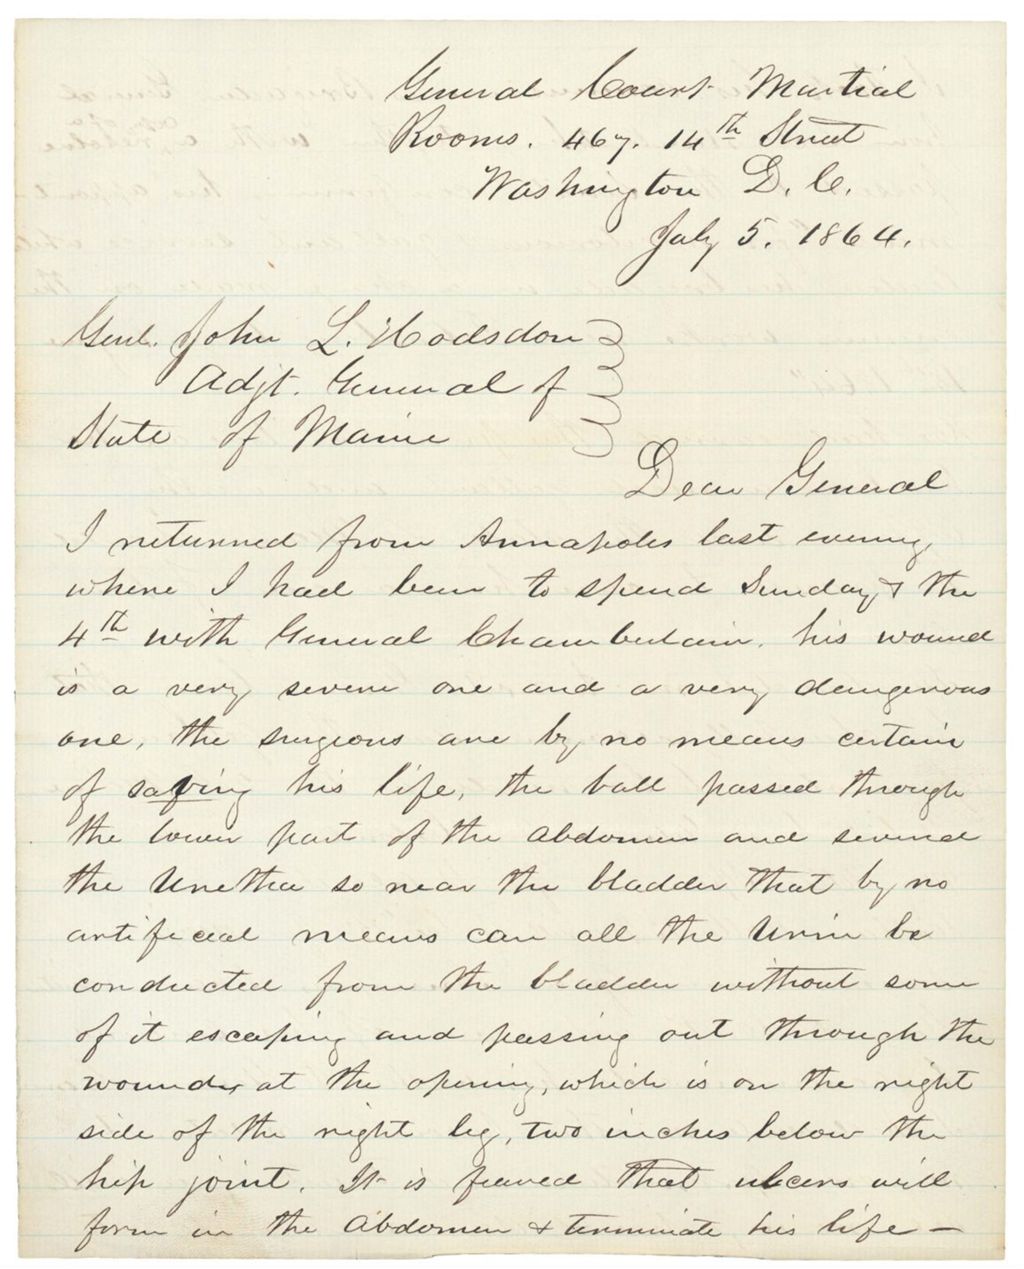 General Court Martial
Rooms. 467. 14th Street
Washington D. C.
July 5. 1864.
Genl. John L. Hodsdon
Adjt. General of
State of Maine
Dear General
I returned from Annapolis last evening
where I had been to spend Sunday & the
4th with General Chamberlain. his wound
is a very severe one and a very dangerous
one, the surgeons are by no means certain
of saving his life, the ball passed through
the lower part of the abdomen and severed
the Urethra so near the bladder that by no
artificial means can all the Urin be
conducted from the bladder without some
of it escaping and passing out through the
wound, at the opening, which is on the right
side of the right leg, two inches below the
hip joint. It is feared that ulcers will
form in the Abdomen & terminate his life —